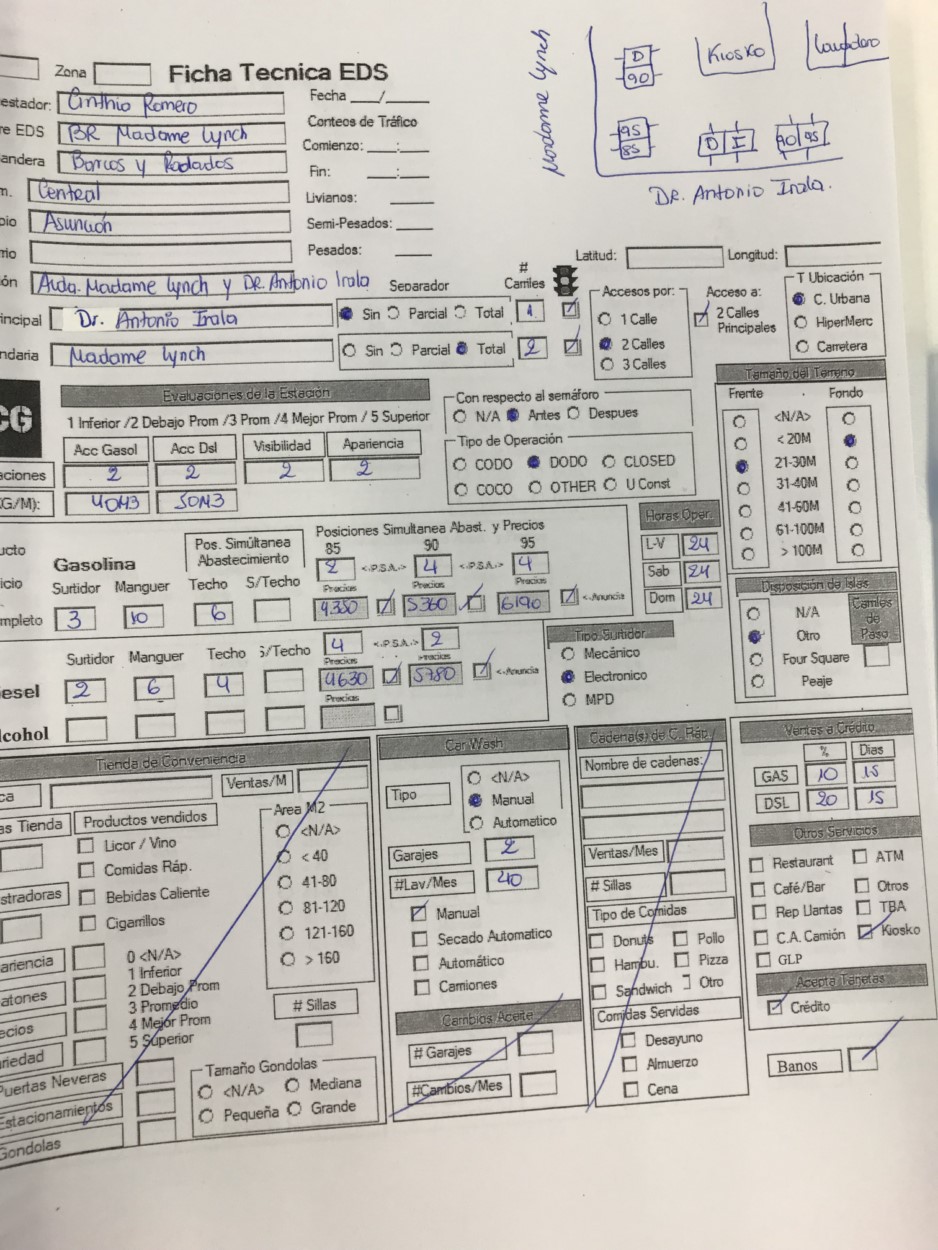 Madame Lynch
D
90
Kiosko
95
85
D I
90 95
DR. Antonio Irala.
Zona
Ficha Tecnica EDS
estador: Cinthia Romero
Fecha ___/____
re EDS BR Madame Lynch
Conteos de Tráfico
andera Barcos y Rodados
Comienzo: ___:___
m. Central
Fin: ___:___
pio Asunción
Livianos: ____
Semi-Pesados: ____
rio
Pesados: ____
ón Avda. Madame Lynch y DR. Antonio Irala
Separador
# Carriles
Latitud: Longitud:
incipal Dr. Antonio Irala
Sin Parcial Total 1
ndaria Madame Lynch
Sin Parcial Total 2
Accesos por:
1 Calle
2 Calles
3 Calles
Acceso a:
2 Calles
Principales
T Ubicación
C. Urbana
HiperMerc
Carretera
CG
Evaluaciones de la Estación
1 Inferior /2 Debajo Prom /3 Prom /4 Mejor Prom / 5 Superior
Acc Gasol Acc Dsl Visibilidad Apariencia
aciones 2 2 2 2
(G/M): 40M3 50M3
Con respecto al semáforo
N/A Antes Despues
Tipo de Operación
CODO DODO CLOSED
COCO OTHER U Const
Tamaño del Terreno
Frente Fondo
<N/A>
< 20M
21-30M
31-40M
41-60M
61-100M
> 100M
Horas Oper.
L-V 24
Sab 24
Dom 24
ucto
icio
mpleto
Gasolina
Pos. Simúltanea
Abastecimiento
Posiciones Simultanea Abast. y Precios
85 90 95
2 <-P.S.A.-> 4 <-P.S.A.-> 4
Surtidor Manguer Techo S/Techo
Precios Precios Precios
3 10 6
4.350 5360 6190 <-Anuncia
Surtidor Manguer Techo S/Techo
4 <-P.S.A.-> 2
Precios Precios
esel 2 6 4
4630 5780 <-Anuncia
Precios
lcohol
Tipo Surtidor
Mecánico
Electronico
MPD
Disposición de Islas
N/A
Otro
Four Square
Peaje
Carriles
de
Paso
Tienda de Conveniencia
ca Ventas/M
as Tienda Productos vendidos
Licor / Vino
Comidas Ráp.
Bebidas Caliente
Cigarrillos
stradoras
Area M2
<N/A>
< 40
41-80
81-120
121-160
> 160
ariencia
atones
ecios
riedad
Puertas Neveras
Estacionamientos
Gondolas
0 <N/A>
1 Inferior
2 Debajo Prom
3 Promedio
4 Mejor Prom
5 Superior
# Sillas
Tamaño Gondolas
<N/A> Mediana
Pequeña Grande
Car Wash
Tipo
<N/A>
Manual
Automatico
Garajes 2
#Lav/Mes 40
Manual
Secado Automatico
Automático
Camiones
Cambios Aceite
# Garajes
#Cambios/Mes
Cadena(s) de C. Ráp.
Nombre de cadenas:
Ventas/Mes
# Sillas
Tipo de Comidas
Donuts Pollo
Hambu. Pizza
Sandwich Otro
Comidas Servidas
Desayuno
Almuerzo
Cena
Ventas a Crédito
% Dias
GAS 10 15
DSL 20 15
Otros Servicios
Restaurant ATM
Café/Bar Otros
Rep Llantas TBA
C.A. Camión Kiosko
GLP
Acepta Tarjetas
Crédito
Banos